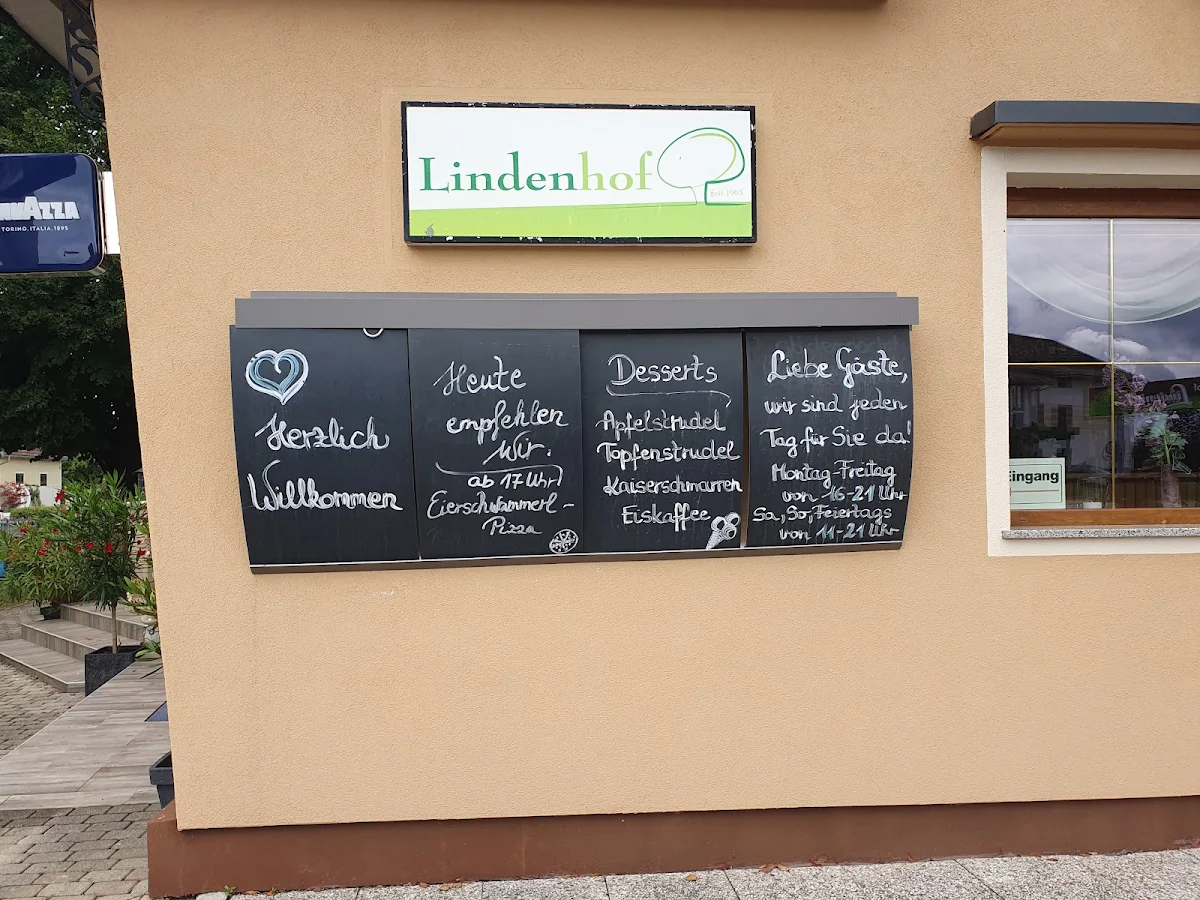 Lindenhof
Seit 1963
LAVAZZA
TORINO, ITALIA, 1895
Herzlich
Willkommen
Heute
empfehlen
wir.
ab 17 Uhr!
Eierschwammerl-
Pizza
Desserts
Apfelstrudel
Topfenstrudel
Kaiserschmarren
Eiskaffee
Liebe Gäste,
wir sind jeden
Tag für Sie da!
Montag-Freitag
von 16-21 Uhr
Sa, So, Feiertags
von 11-21 Uhr
Eingang